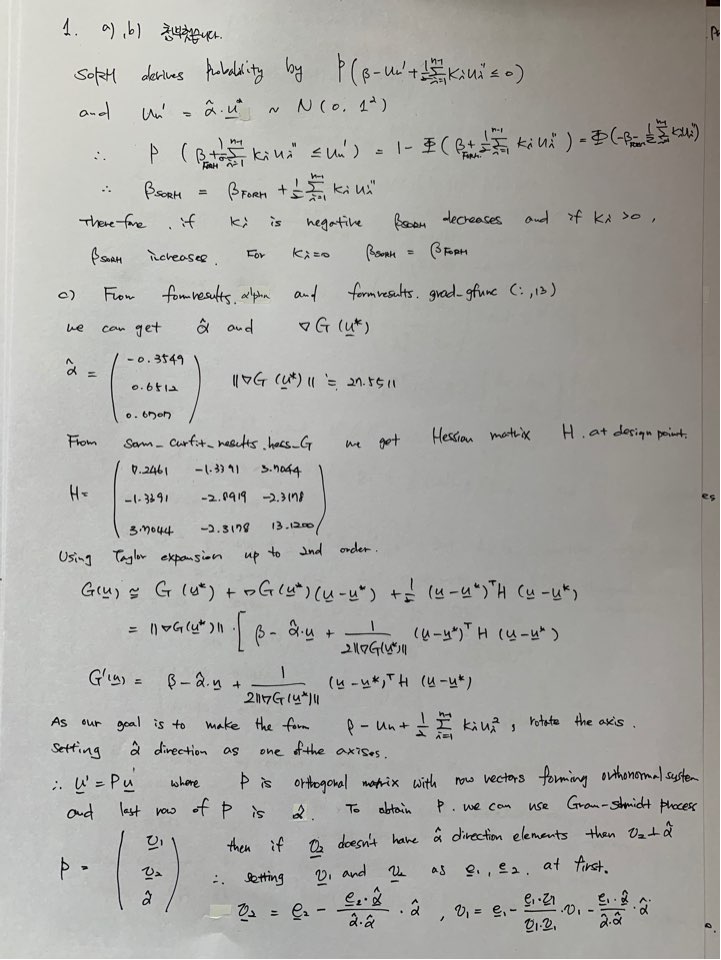 1. a), b) 첨부했습니다.
SORM derives probability by P(β - un' + ½ Σ_{i=1}^{n-1} κi ui'² ≤ 0)
and un' = α̂·u* ~ N(0, 1²)
∴ P(β_FORM + ½ Σ_{i=1}^{n-1} κi ui'² ≤ un') = 1 - Φ(β_FORM + ½ Σ_{i=1}^{n-1} κi ui'²) = Φ(-β_FORM - ½ Σ_{i=1}^{n-1} κi ui'²)
∴ β_SORM = β_FORM + ½ Σ_{i=1}^{n-1} κi ui'²
Therefore, if κi is negative β_SORM decreases and if κi > 0,
β_SORM increases. For κi = 0 β_SORM = β_FORM
c) From formresults.alpha and formresults.grad_gfunc(:,13)
we can get α̂ and ∇G(u*)
α̂ = ( -0.3549
0.6512
0.6707 ) ||∇G(u*)|| ≒ 27.5511
From sorm_curfit_results.hess_G we get Hessian matrix H. at design point.
H = ( 0.2461 -1.3391 3.7044
-1.3391 -2.8919 -2.3178
3.7044 -2.3178 13.1200 )
Using Taylor expansion up to 2nd order.
G(u) ≅ G(u*) + ∇G(u*)(u-u*) + ½ (u-u*)ᵀH (u-u*)
= ||∇G(u*)||·[ β - α̂·u + 1/(2||∇G(u*)||) (u-u*)ᵀ H (u-u*)
G'(u) = β - α̂·u + 1/(2||∇G(u*)||) (u-u*)ᵀ H (u-u*)
As our goal is to make the form β - un + ½ Σ_{i=1}^{n-1} κi ui², rotate the axis.
Setting α̂ direction as one of the axises.
∴ u' = Pu where P is orthogonal matrix with row vectors forming orthonormal system
and last row of P is α̂. To obtain P. we can use Gram-shmidt process
P = ( v1
v2
α̂ ) then if v2 doesn't have α̂ direction elements then v2⊥α̂
∴ setting v1 and v2 as e1, e2. at first.
v2 = e2 - (e2·α̂)/(α̂·α̂)·α̂ , v1 = e1 - (e1·v1)/(v1·v1)·v1 - (e1·α̂)/(α̂·α̂)·α̂